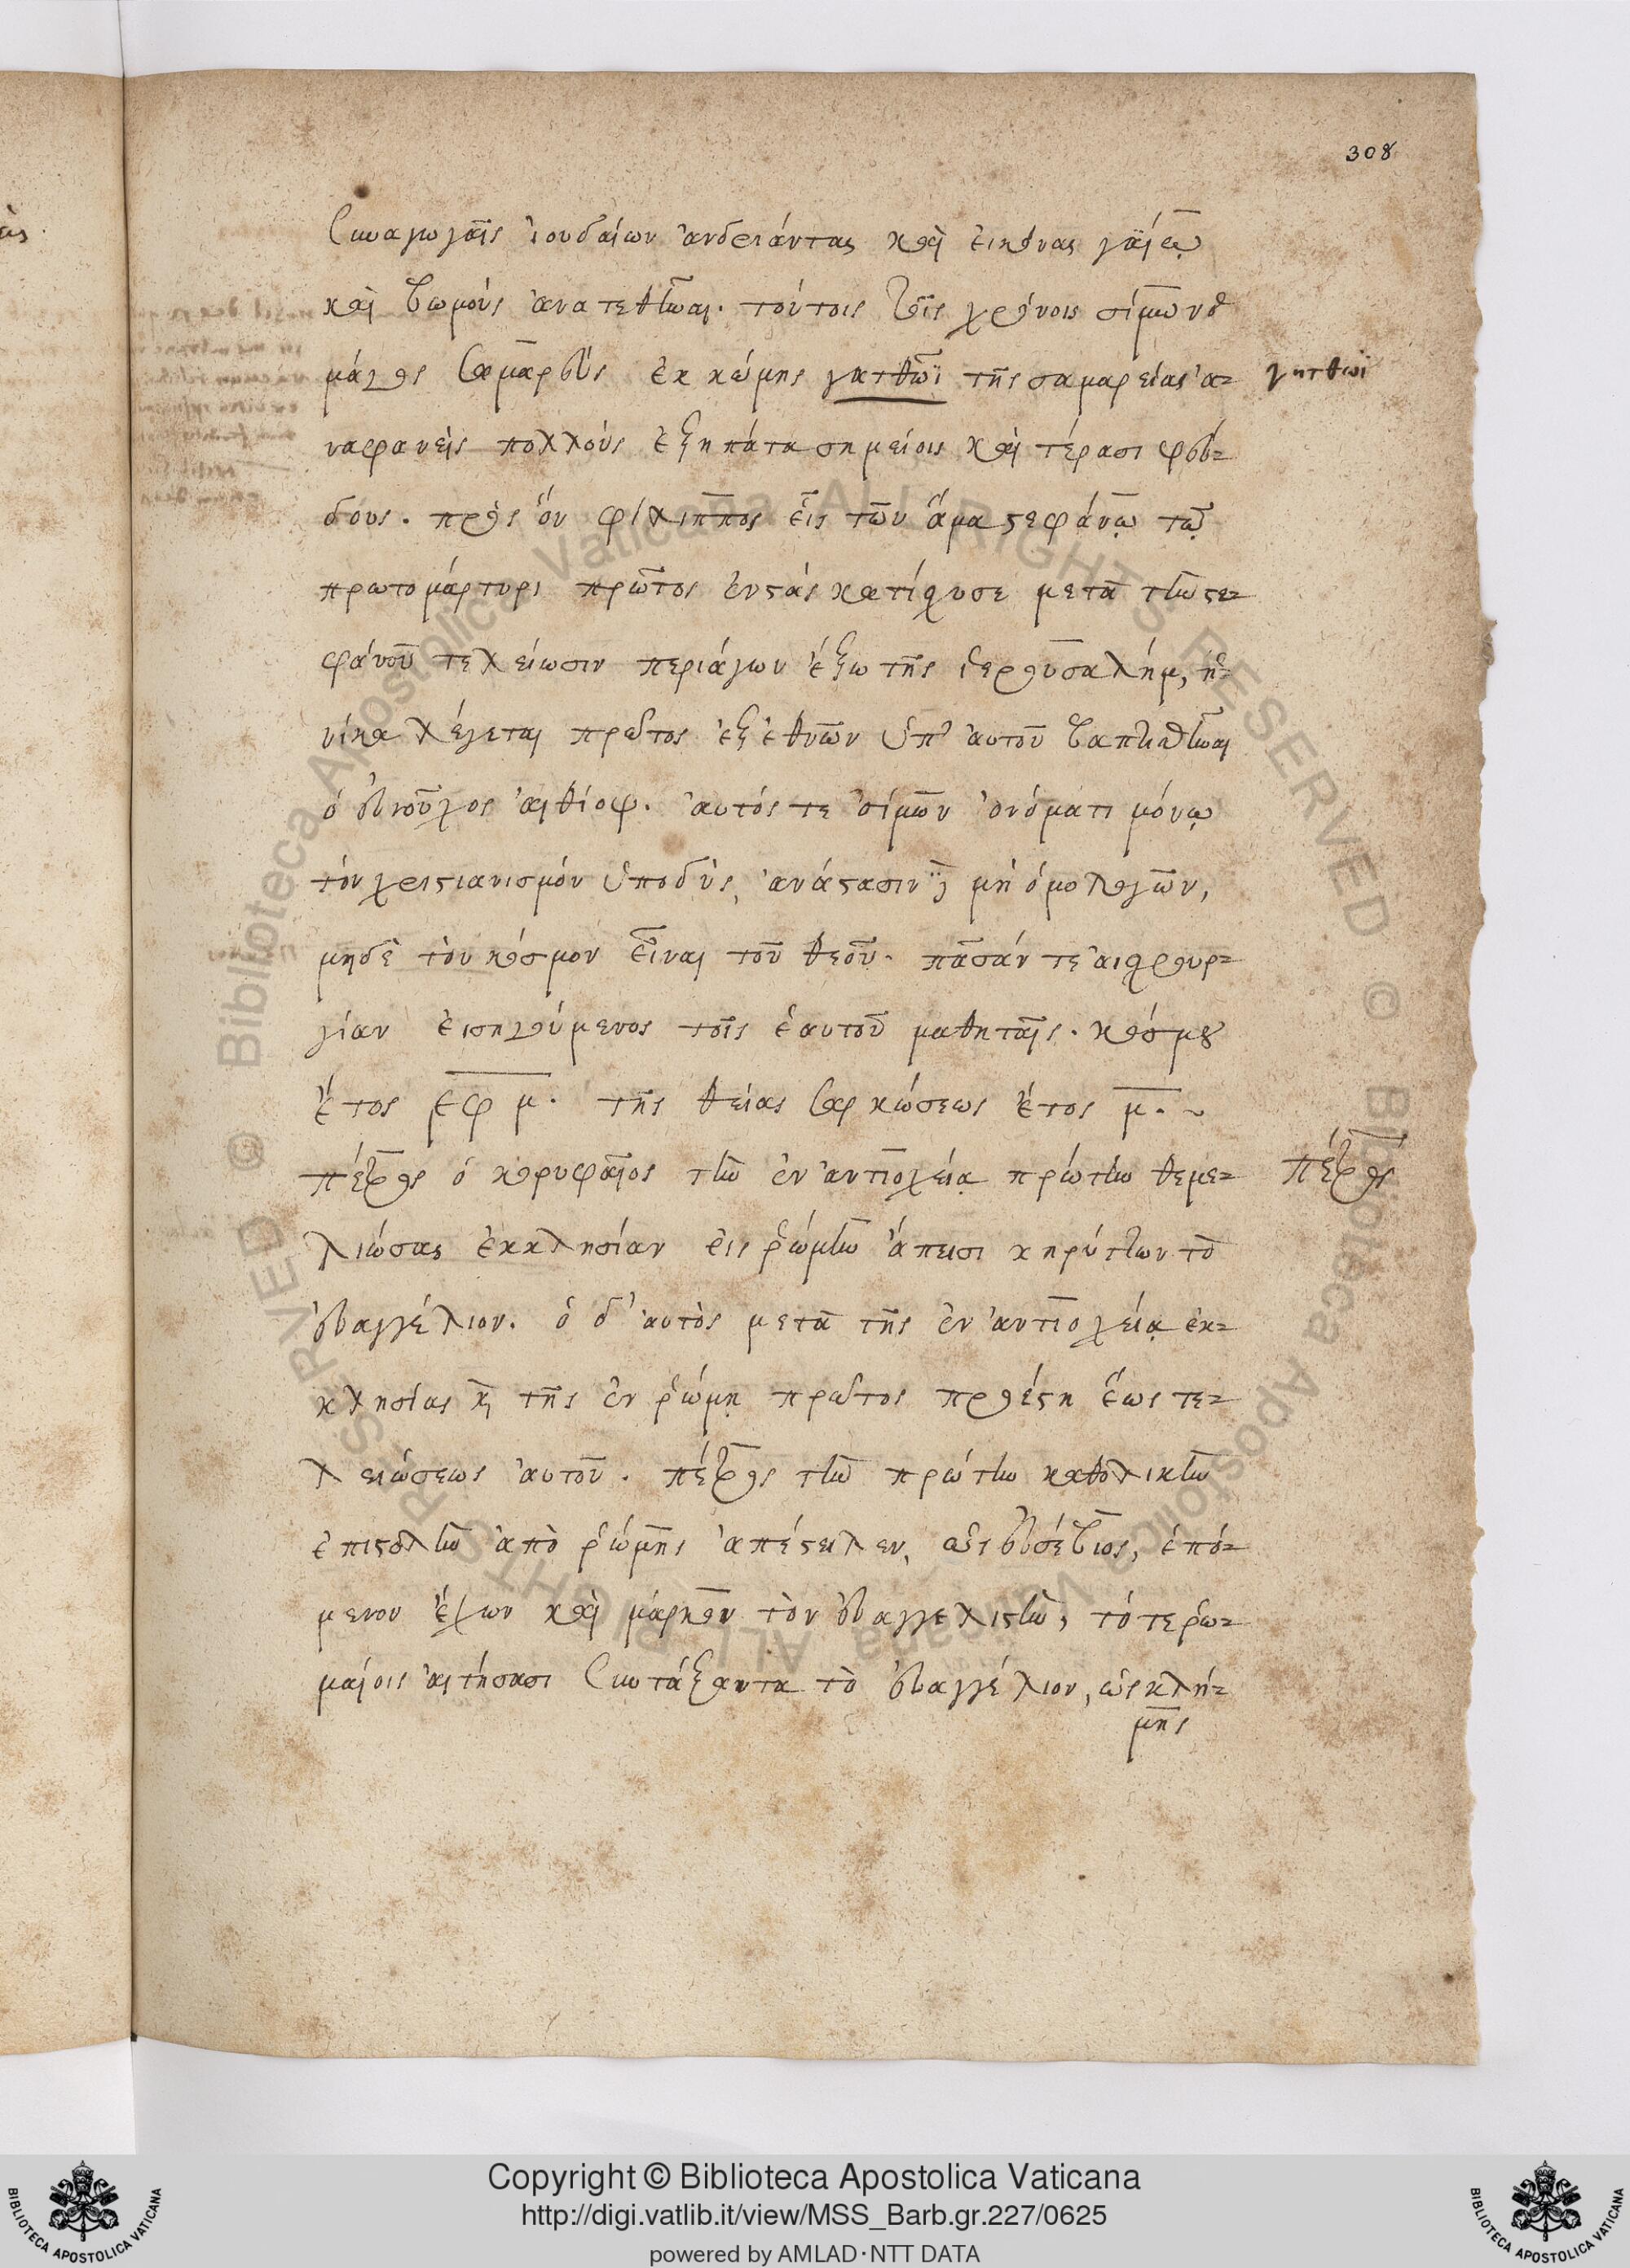 308
συναγωγαῖς ἰουδαίων ἀνδριάντας καὶ εἰκόνας γαΐῳ
καὶ βωμοὺς ἀνατεθῆναι. τούτοις τοῖς χρόνοις σίμων ὁ
μάγος σαμαρεὺς ἐκ κώμης γατθῶϊ τῆς σαμαρείας ἀ-
γητθωϊ
ναφανεὶς πολλοὺς ἐξηπάτα σημείοις καὶ τέρασι ψευ-
δοῦς. πρὸς ὃν φίλιππος εἷς τῶν ἅμα στεφάνῳ τῷ
πρωτομάρτυρι πρῶτος ἐνστὰς κατίσχυσε μετὰ τὴν στε-
φάνου τελείωσιν περιάγων ἔξω τῆς ἱερουσαλήμ, ἡ-
νίκα λέγεται πρῶτος ἐξ ἐθνῶν ὑπ' αὐτοῦ βαπτισθῆναι
ὁ εὐνοῦχος αἰθίοψ. αὐτός τε σίμων ὀνόματι μόνῳ
τὸν χριστιανισμὸν ὑποδὺς, ἀνάστασιν δὲ μὴ ὁμολογῶν,
μηδὲ τὸν κόσμον εἶναι τοῦ θεοῦ. πᾶσάν τε αἰσχρουρ-
γίαν εἰσηγούμενος τοῖς ἑαυτοῦ μαθηταῖς. κόσμου
ἔτος ͵εφμ. τῆς θείας σαρκώσεως ἔτος μ. ~
πέτρος ὁ κορυφαῖος τὴν ἐν ἀντιοχείᾳ πρώτην θεμε-
πέτρος
λιώσας ἐκκλησίαν εἰς ῥώμην ἄπεισι κηρύττων τὸ
εὐαγγέλιον. ὁ δ' αὐτὸς μετὰ τῆς ἐν ἀντιοχείᾳ ἐκ-
κλησίας καὶ τῆς ἐν ῥώμῃ πρῶτος προέστη ἕως τε-
λειώσεως αὐτοῦ. πέτρος τὴν πρώτην καθολικὴν
ἐπιστολὴν ἀπὸ ῥώμης ἀπέστειλεν, ὡς εὐσέβιος, ἑπό-
μενον ἔχων καὶ μάρκον τὸν εὐαγγελιστὴν, τό τε ῥω-
μαίοις αἰτήσασι συντάξαντα τὸ εὐαγγέλιον, ὡς κλή-
μης
Copyright © Biblioteca Apostolica Vaticana
http://digi.vatlib.it/view/MSS_Barb.gr.227/0625
powered by AMLAD·NTT DATA
BIBLIOTECA APOSTOLICA VATICANA
BIBLIOTECA APOSTOLICA VATICANA